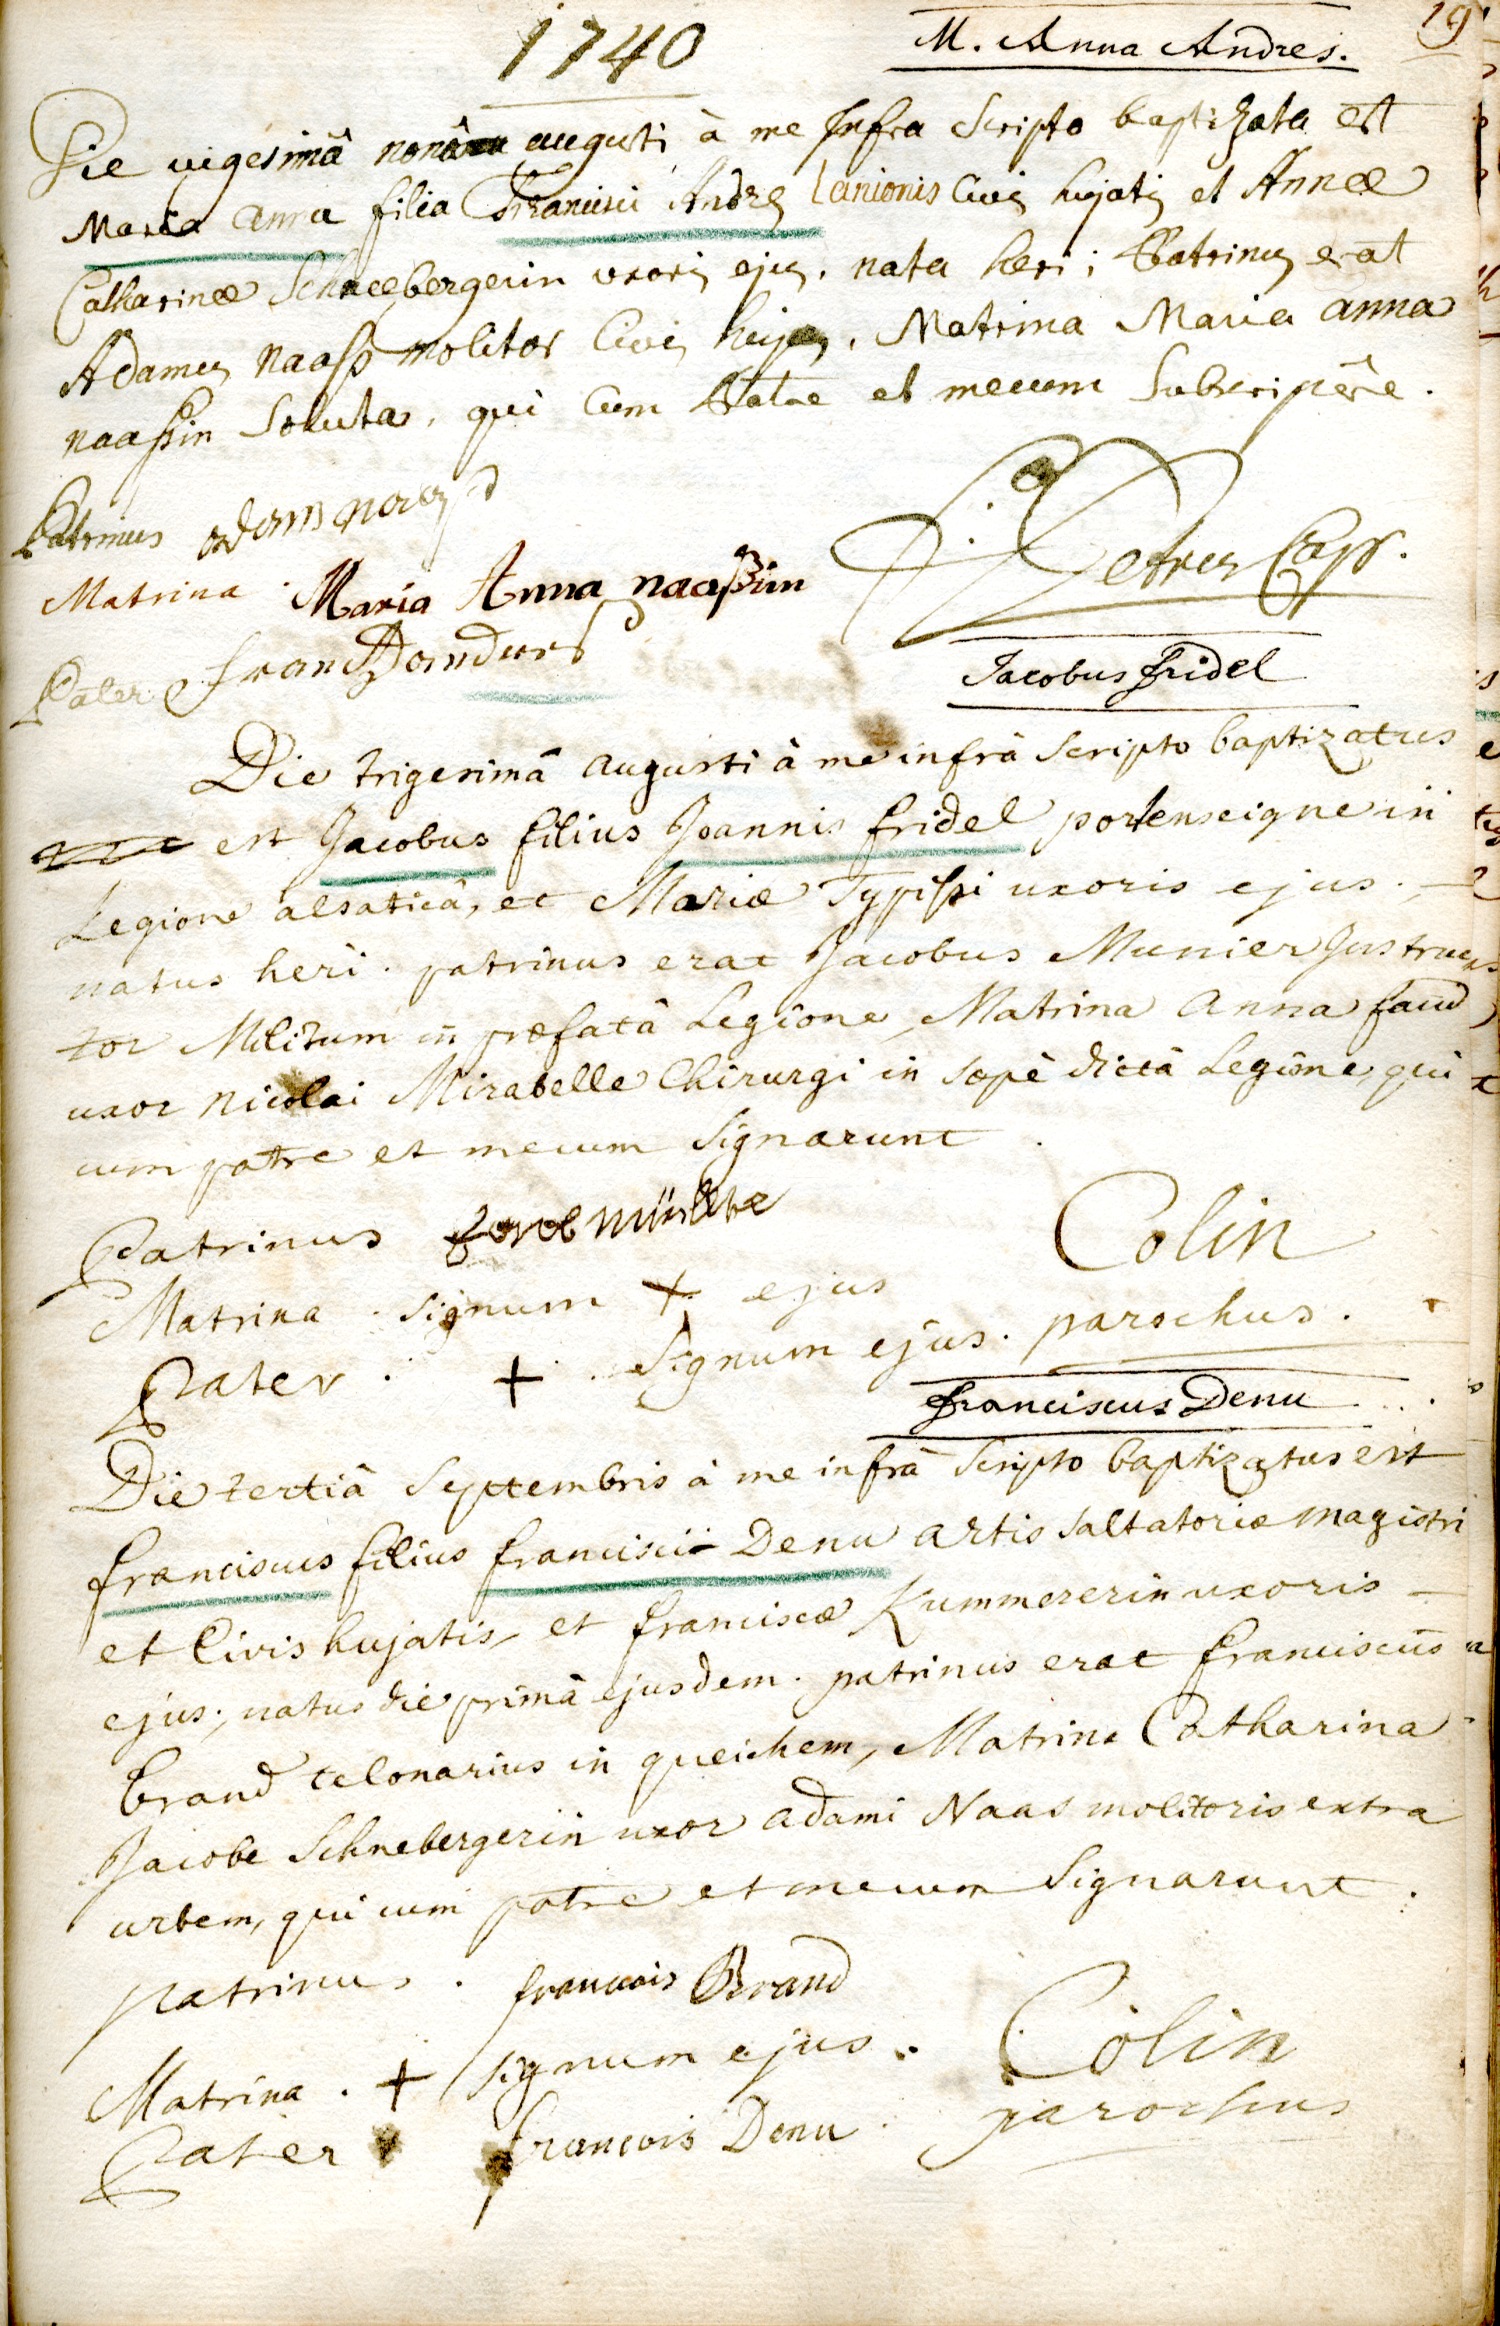 19
1740
M. Anna Andres.
Die vigesimâ nonâ augusti à me Infra Scripto baptizata est
Maria anna filia Francisci Andres lanionis Civis hujatis et Annæ
Catharinæ Schneebergerin uxoris ejus, nata heri; Patrinus erat
Adamus naaß molitor Civis hujas, Matrina Maria anna
naaßin Soluta, qui Cum Patre et mecum Subscripsêre.
Patrinus adam naaß
Matrina Maria Anna naaßin
Petrus Capp.
Pater frantz anders
Jacobus fridel
Die trigesimâ augusti à me infrà Scripto baptizatus
est Jacobus filius Joannis fridel portenseigne in
Legione alsaticâ, et Mariæ Typissi uxoris ejus.
natus heri. patrinus erat Jacobus Munier Instruc
tor Militum in præfatâ Legione, Matrina Anna faud
uxor nicolai Mirabelle Chirurgi in sæpè dictâ Legione, qui
cum patre et mecum Signarunt.
Patrinus
Colin
Matrina. signum + ejus
parochus.
Pater. + Signum ejus.
franciscus Denu
Die tertiâ Septembris à me infrà Scripto baptizatus est
franciscus filius francisci Denu artis saltatoriæ magistri
et Civis hujatis, et franciscæ Kummererin uxoris
ejus, natus die primâ ejusdem. patrinus erat franciscus
brand telonarius in queichem, Matrina Catharina
Jacobe Schnebergerin uxor adami Naas molitoris extra
urbem, qui cum patre et mecum Signarunt.
patrinus. francois Brand
Matrina. + signum ejus.
Colin
parochus
Pater francois Denu